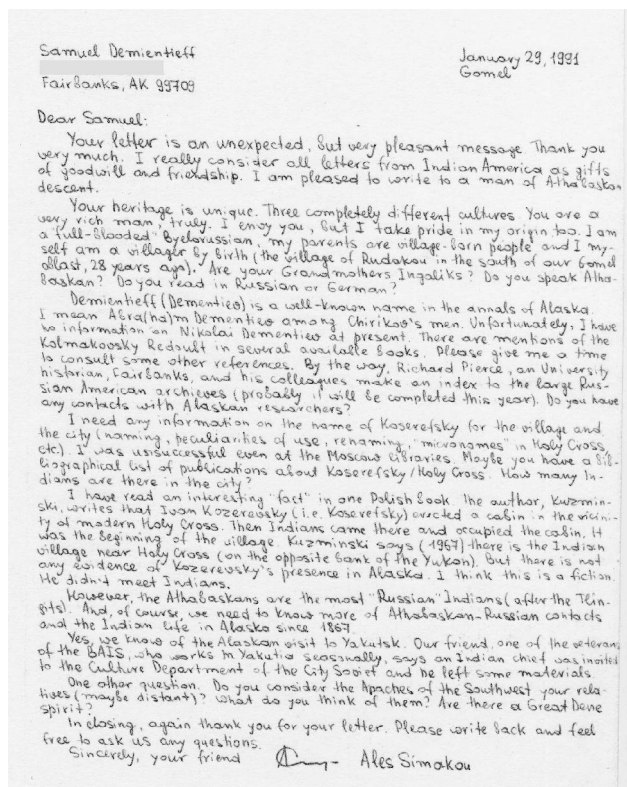 Samuel Demientieff
January 29, 1991
Gomel
Fairbanks, AK 99709
Dear Samuel:
Your letter is an unexpected, but very pleasant message. Thank you
very much. I really consider all letters from Indian America as gifts
of goodwill and friendship. I am pleased to write to a man of Athabaskan
descent.
Your heritage is unique. Three completely different cultures. You are a
very rich man, truly. I envy you, but I take pride in my origin too. I am
a "full-blooded" Byelorussian, my parents are village-born people and I my-
self am a villager by birth (the village of Rudakou in the south of our Gomel
oblast, 28 years ago). Are your Grandmothers Ingaliks? Do you speak Atha-
baskan? Do you read in Russian or German?
Demientieff (Dementiev) is a well-known name in the annals of Alaska.
I mean Abra(ha)m Dementiev among Chirikov's men. Unfortunately, I have
no information on Nikolai Dementiev at present. There are mentions of the
Kolmakovsky Redoult in several available books. Please give me a time
to consult some other references. By the way, Richard Pierce, an University
historian, Fairbanks, and his colleagues make an index to the large Rus-
sian American archieves (probably it will be completed this year). Do you have
any contacts with Alaskan researchers?
I need any information on the name of Koserefsky for the village and
the city (naming, peculiarities of use, renaming, "micronomes" in Holy Cross,
etc.). I was usuccessful even at the Moscow libraries. Maybe you have a bib-
liographical list of publications about Koserefsky/Holy Cross. How many In-
dians are there in the city?
I have read an interesting "fact" in one Polish book. The author, Kuzmin-
ski, writes that Ivan Kozerevsky (i.e. Koserefsky) erected a cabin in the vicini-
ty of modern Holy Cross. Then Indians came there and occupied the cabin. It
was the beginning of the village. Kuzminski says (1967) there is the Indian
village near Holy Cross (on the opposite bank of the Yukon). But there is not
any evidence of Kozerevsky's presence in Alaska. I think this is a fiction.
He didn't meet Indians.
However, the Athabaskans are the most "Russian" Indians (after the Tlin-
gits). And, of course, we need to know more of Athabaskan-Russian contacts
and the Indian life in Alaska since 1867.
Yes, we know of the Alaskan visit to Yakutsk. Our friend, one of the veterans
of the BAIS, who works in Yakutia seasonally, says an Indian chief was invited
to the Culture Department of the City Soviet and he left some materials.
One other question. Do you consider the Apaches of the Southwest your rela-
tives (maybe distant)? What do you think of them? Are there a Great Dene
spirit?
In closing, again thank you for your letter. Please write back and feel
free to ask us any questions.
Sincerely, your friend Ales Simakou